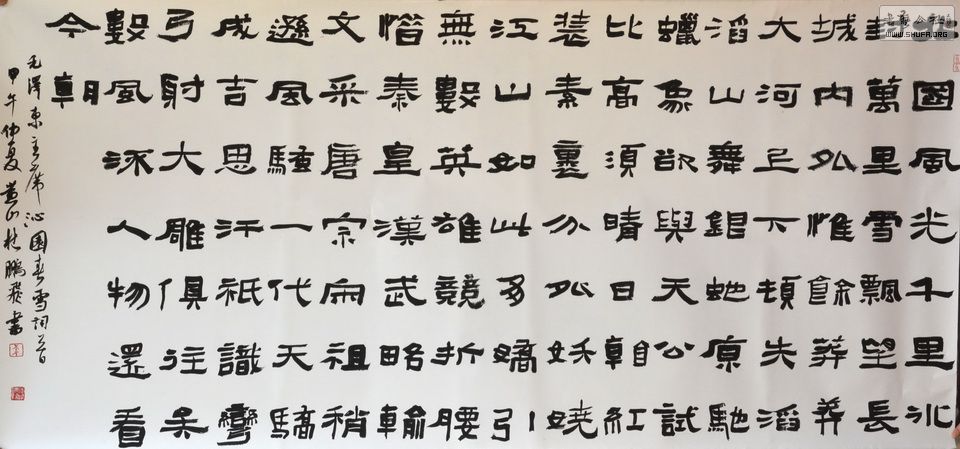 國風光千里冰
封萬里雪飄望長
城内外惟餘莽莽
大河上下頓失滔
滔山舞銀蛇原馳
蠟象欲與天公試
比高須晴日看紅
裝素裹分外妖嬈
江山如此多嬌引
無數英雄競折腰
惜秦皇漢武略輸
文采唐宗宋祖稍
遜風騷一代天驕
成吉思汗祇識彎
弓射大雕俱往矣
數風流人物還看
今朝
毛澤東主席沁園春雪詞一首
甲午仲夏黃山鵬飛書
WWW.SHUFA.ORG